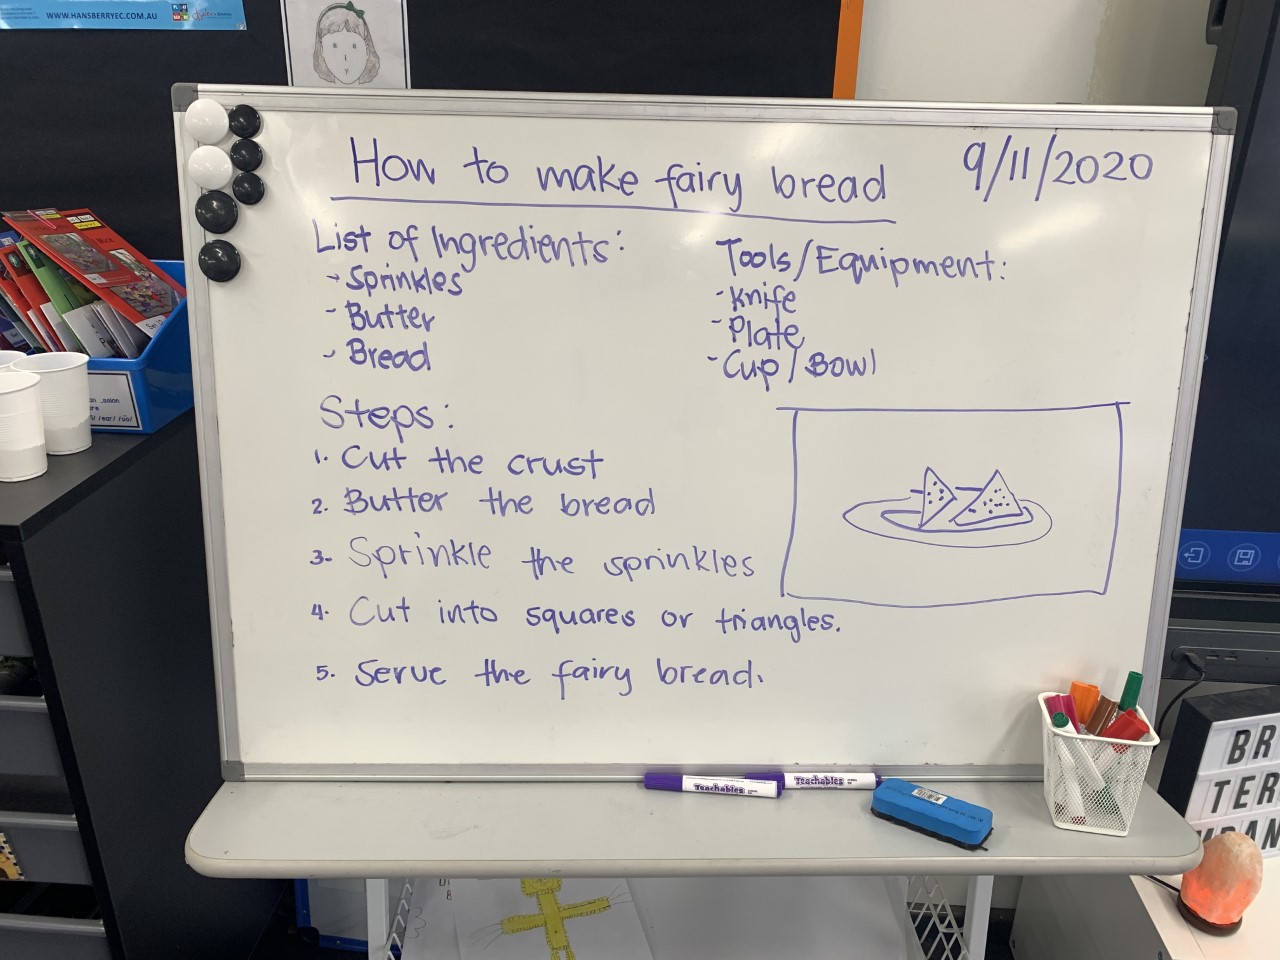 WWW.HANSBERRYEC.COM.AU
How to make fairy bread
9/11/2020
List of Ingredients:
- Sprinkles
- Butter
- Bread
Tools/Equipment:
- Knife
- Plate
- Cup/Bowl
Steps:
1. Cut the crust
2. Butter the bread
3. Sprinkle the sprinkles
4. Cut into squares or triangles.
5. Serve the fairy bread.
Teachables
Teachables
BR
TER